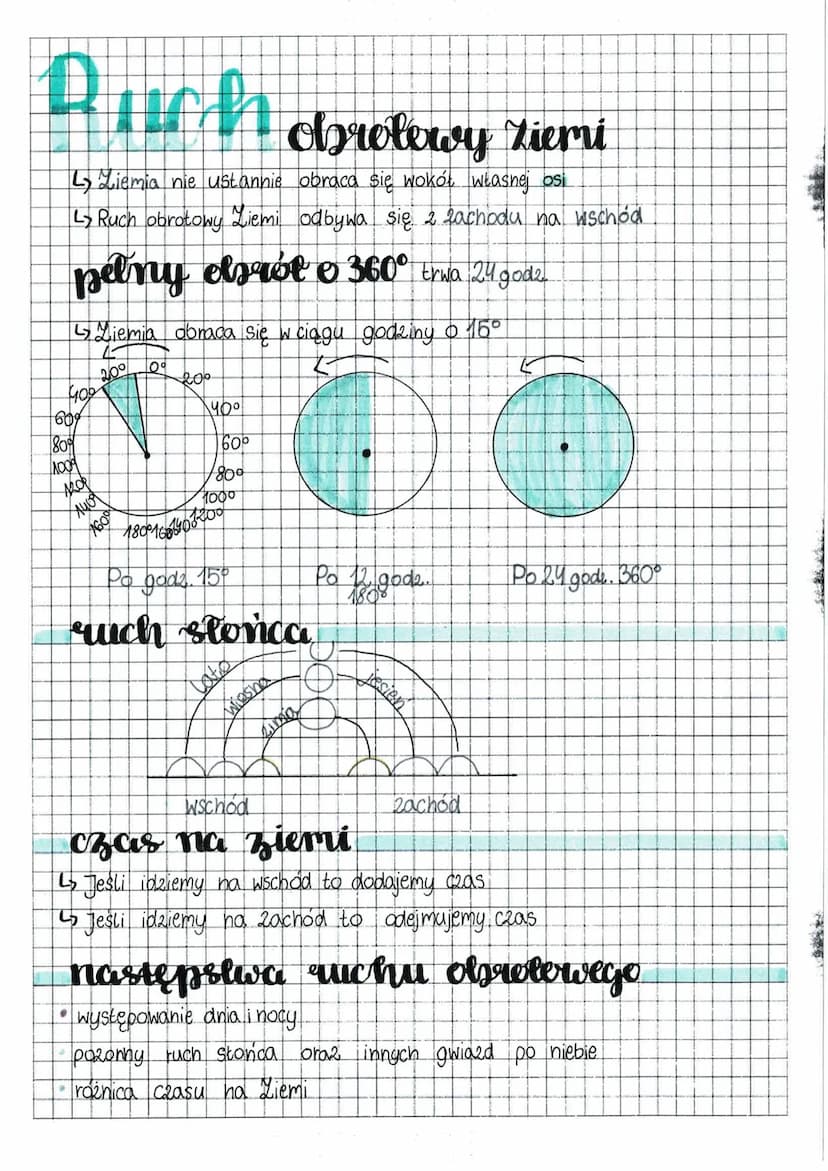 Ruch obrotowy Ziemi
↳ Ziemia nie ustannie obraca się wokół własnej osi
↳ Ruch obrotowy Ziemi odbywa się z zachodu na wschód
pełny obrót o 360° trwa 24 godz
↳ Ziemia obraca się w ciągu godziny o 15°
20° 0° 20°
40° 40°
60° 60°
80° 80°
100° 100°
120° 120°
140° 140°
160° 180° 160°
Po godz. 15° Po 12 godz. Po 24 godz. 360°
180°
ruch słońca
Lato
wiosna jesień
zima
wschód zachód
czas na ziemi
↳ Jeśli idziemy na wschód to dodajemy czas
↳ Jeśli idziemy na zachód to odejmujemy czas
następstwa ruchu obrotowego
• występowanie dnia i nocy
• pozorny ruch słońca oraz innych gwiazd po niebie
• różnica czasu na Ziemi